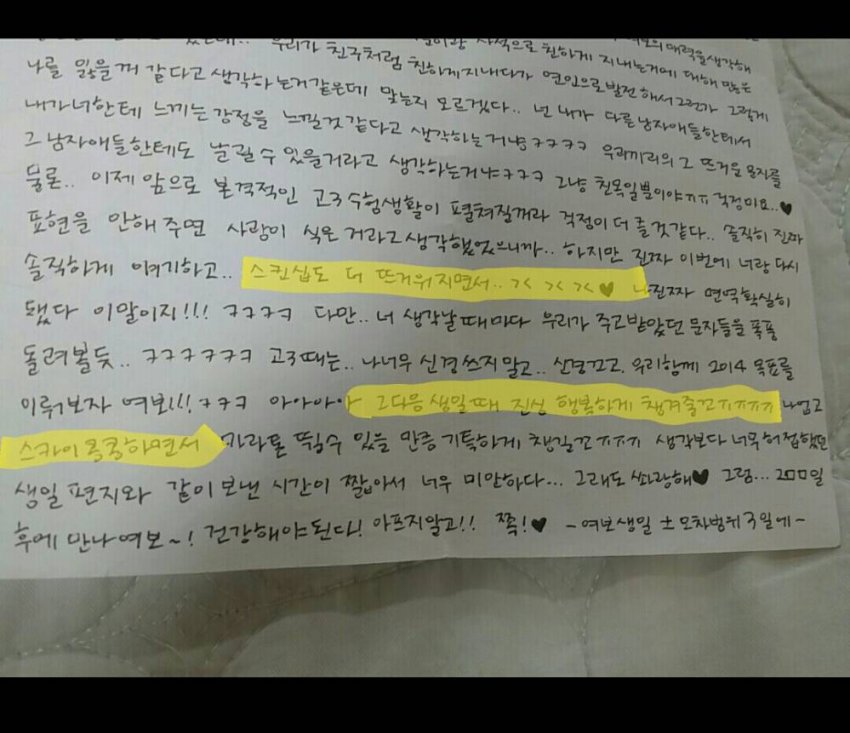 사적으로 친하게 지내는거에 대해 많은
나를 잃을꺼 같다고 생각하는거같은데 맞는지 모르겠다.. 넌 내가 다른남자애들한테서
우리가 친구처럼 친하게지내다가 연인으로발전해서그런가 그렇게
내가너한테 느끼는 감정을 느낄것같다고 생각하는거냥ㅋㅋㅋㅋ 우리끼리의 그 뜨거운 문자를
그 남자애들한테도 날릴 수 있을거라고 생각하는거냐ㅋㅋㅋ 그냥 친목일뿐이야ㅠㅠ 걱정마요..♥
물론.. 이제 앞으로 본격적인 고3수험생활이 펼쳐질꺼라 걱정이 더 클것같다.. 솔직히 진짜
표현을 안해주면 사랑이 식은거라고 생각했었으니까.. 하지만 진짜 이번에 너랑 다시
솔직하게 얘기하고.. 스킨십도 더 뜨거워지면서..>< >< ><♥ 나진짜 면역확실히
됐다 이말이지!!! ㅋㅋㅋㅋ 다만.. 너 생각날때마다 우리가 주고받았던 문자들을 폭풍
돌려볼듯.. ㅋㅋㅋㅋㅋㅋ 고3때는.. 나너무 신경쓰지말고.. 신경끄고. 우리함께 2014 목표를
이뤄보자 여보!!! ㅋㅋㅋ 아아아아 그다음 생일때 진심 행복하게 챙겨줄꼬ㅠㅠㅠㅠ 나업고
스카이콩콩하면서 마라톤 뛸수 있을 만큼 기특하게 챙길꼬ㅠㅠㅠ 생각보다 너무허접했던
생일 편지와 같이 보낸 시간이 짧아서 너무 미안하다... 그래도 쏴랑해♥ 그럼... 200일
후에 만나여보~! 건강해야된다! 아프지말고!! 쪽!♥ -여보생일 ± 오차범위 3일에-